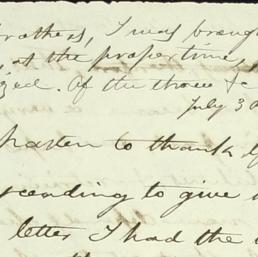 brothers, I was brough
, at the proper time,
of the throne &c
July 3
hasten to thank y
ceeding to give
letter I had the